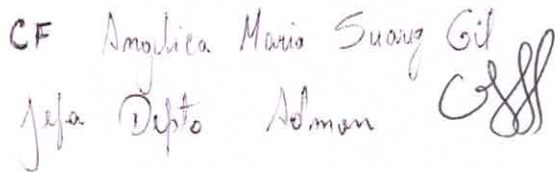 CF Angelica Maria Suarez Gil
Jefa Depto Admon